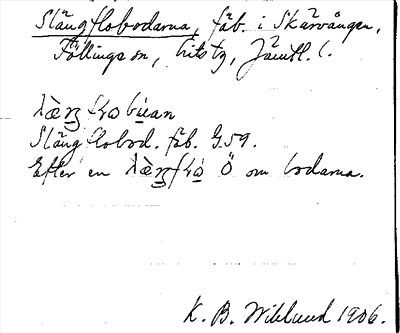 Slängflobodarna, fäb. i Skärvången,
Föllinge sn, Lits tg, Jämtl. l.
Slängflobod. fäb. G.59.
Efter en Ö om bodarna.
K. B. Wiklund 1906.